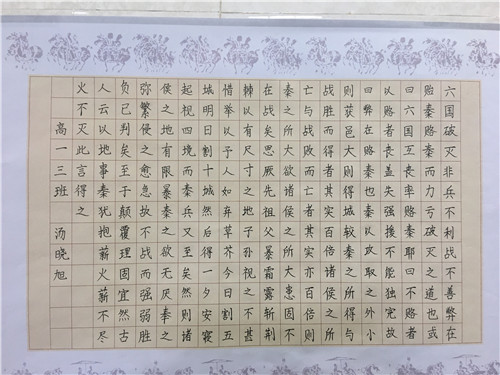 六国破灭非兵不利战不善弊在
赂秦赂秦而力亏破灭之道也或
曰六国互丧率赂秦耶曰不赂者
以赂者丧盖失强援不能独完故
曰弊在赂秦也秦以攻取之外小
则获邑大则得城较秦之所得与
战胜而得者其实百倍诸侯之所
亡与战败而亡者其实亦百倍则
秦之所大欲诸侯之所大患固不
在战矣思厥先祖父暴霜露斩荆
棘以有尺寸之地子孙视之不甚
惜举以予人如弃草芥今日割五
城明日割十城然后得一夕安寝
起视四境而秦兵又至矣然则诸
侯之地有限暴秦之欲无厌奉之
弥繁侵之愈急故不战而强弱胜
负已判矣至于颠覆理固宜然古
人云以地事秦犹抱薪救火薪不尽
火不灭此言得之
高一三班 汤晓旭